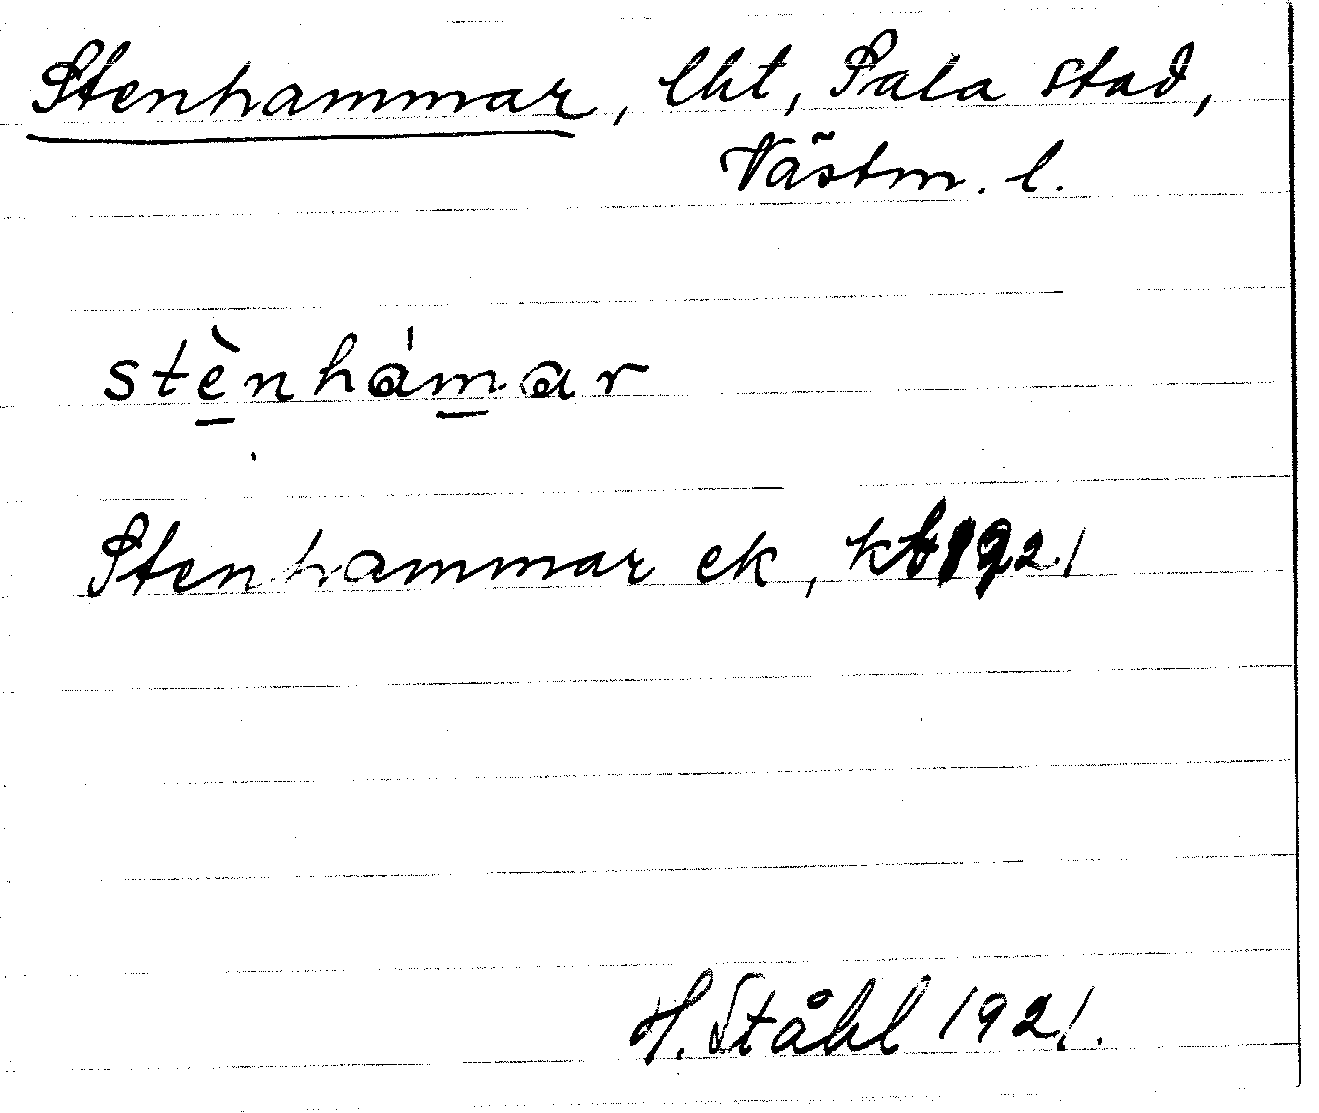 Stenhammar, lht, Sala stad,
Västm. l.
stènhámar
Stenhammar ek, kb 1921
H. Ståhl 1921.